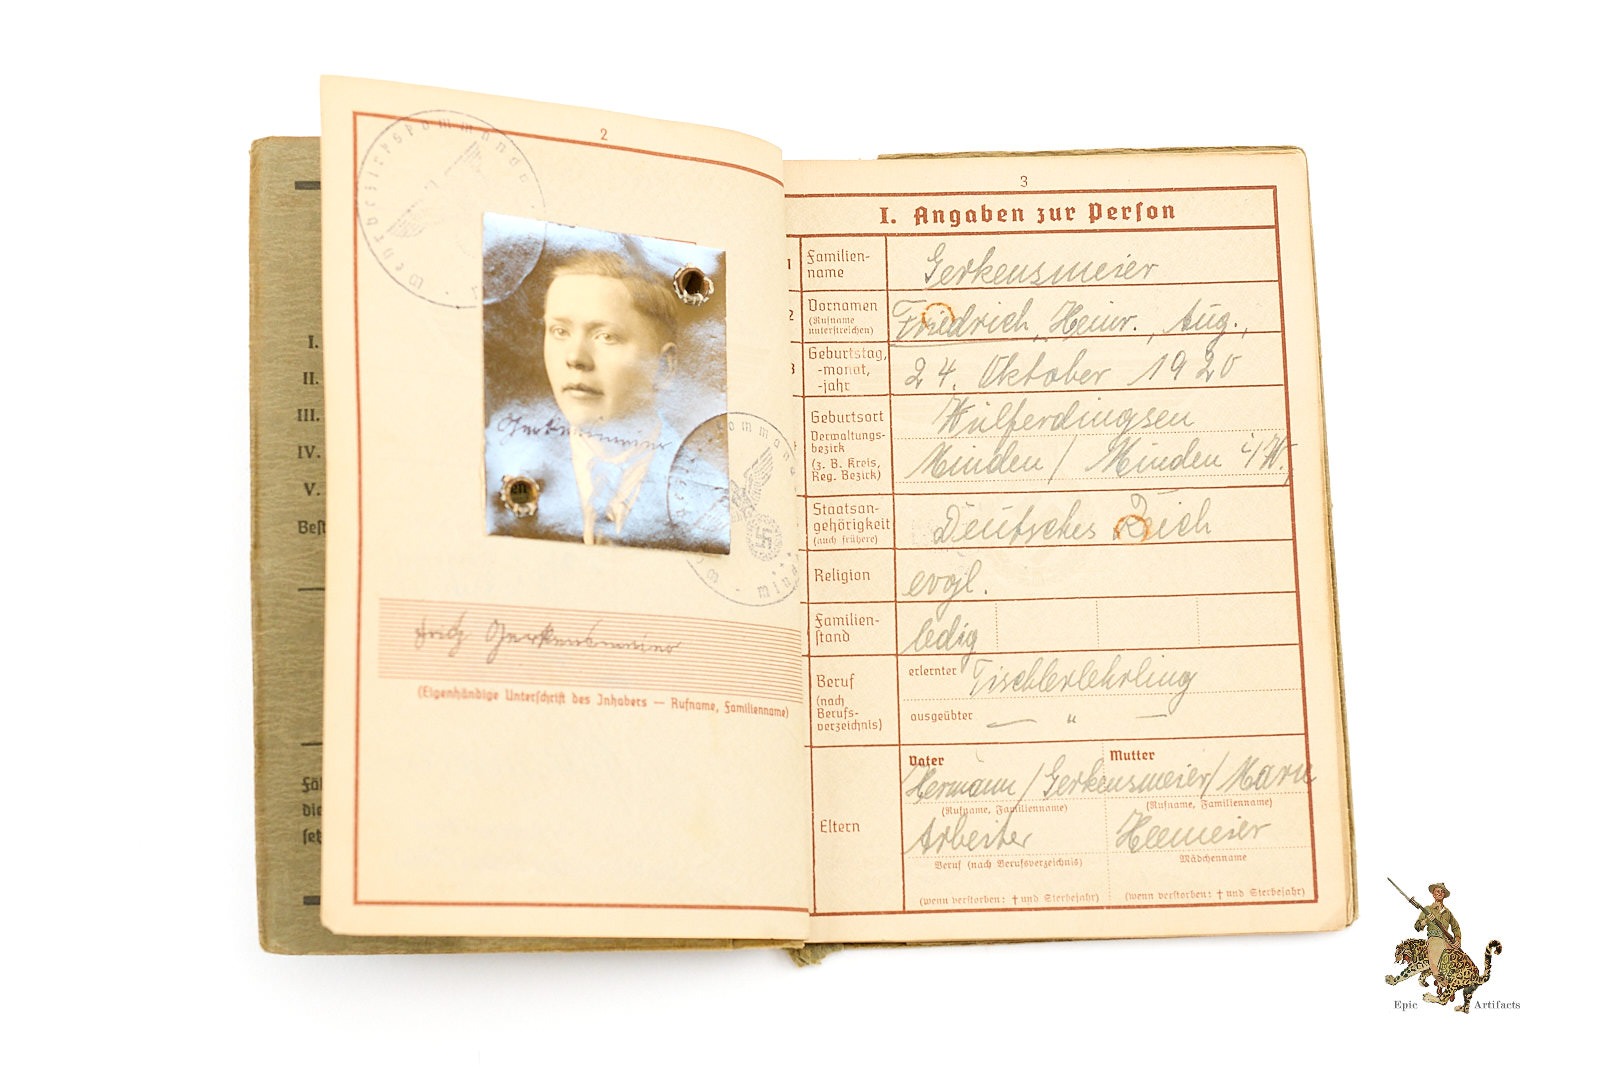 I.
II.
III.
IV.
V.
Best
Fäl
die
set
2
Wehrbezirkskommando
Gerkensmeier
Fritz Gerkensmeier
(Eigenhändige Unterschrift des Inhabers — Rufname, Familienname)
3
I. Angaben zur Person
1 Familien-
name
Gerkensmeier
2 Vornamen
(Rufname
unterstreichen)
Friedrich, Heinr., Aug.,
3 Geburtstag,
-monat,
-jahr
24. Oktober 1920
Geburtsort
Verwaltungs-
bezirk
(z. B. Kreis,
Reg. Bezirk)
Wulferdingsen
Minden / Minden i/W.
Staatsan-
gehörigkeit
(auch frühere)
Deutsches Reich
Religion
evgl.
Familien-
stand
ledig
Beruf
(nach
Berufs-
verzeichnis)
erlernter Tischlerlehrling
ausgeübter — " —
Eltern
Vater
Mutter
Hermann / Gerkensmeier / Marie
(Rufname, Familienname)
(Rufname, Familienname)
Arbeiter
Heemeier
Beruf (nach Berufsverzeichnis)
Mädchenname
(wenn verstorben: † und Sterbejahr)
(wenn verstorben: † und Sterbejahr)
Epic Artifacts